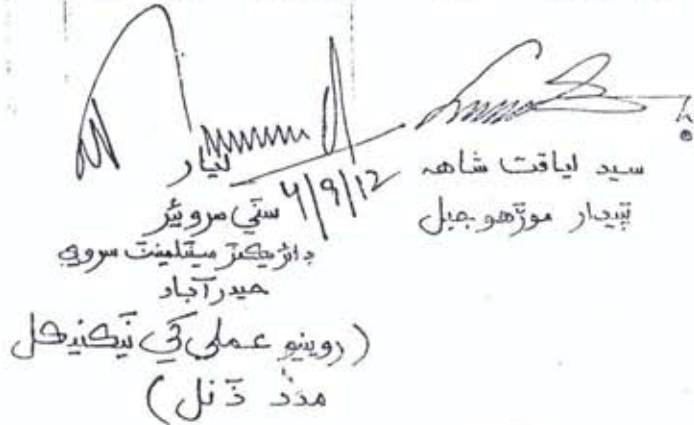 سيد لياقت شاهه
تپيدار موڙهو جبل
لنيار
4/9/12
سٽي سرويئر
ڊائريڪٽر سيٽلمينٽ سروي
حيدرآباد
(روينيو عملي کي ٽيڪنيڪل
مدد ڏنل)